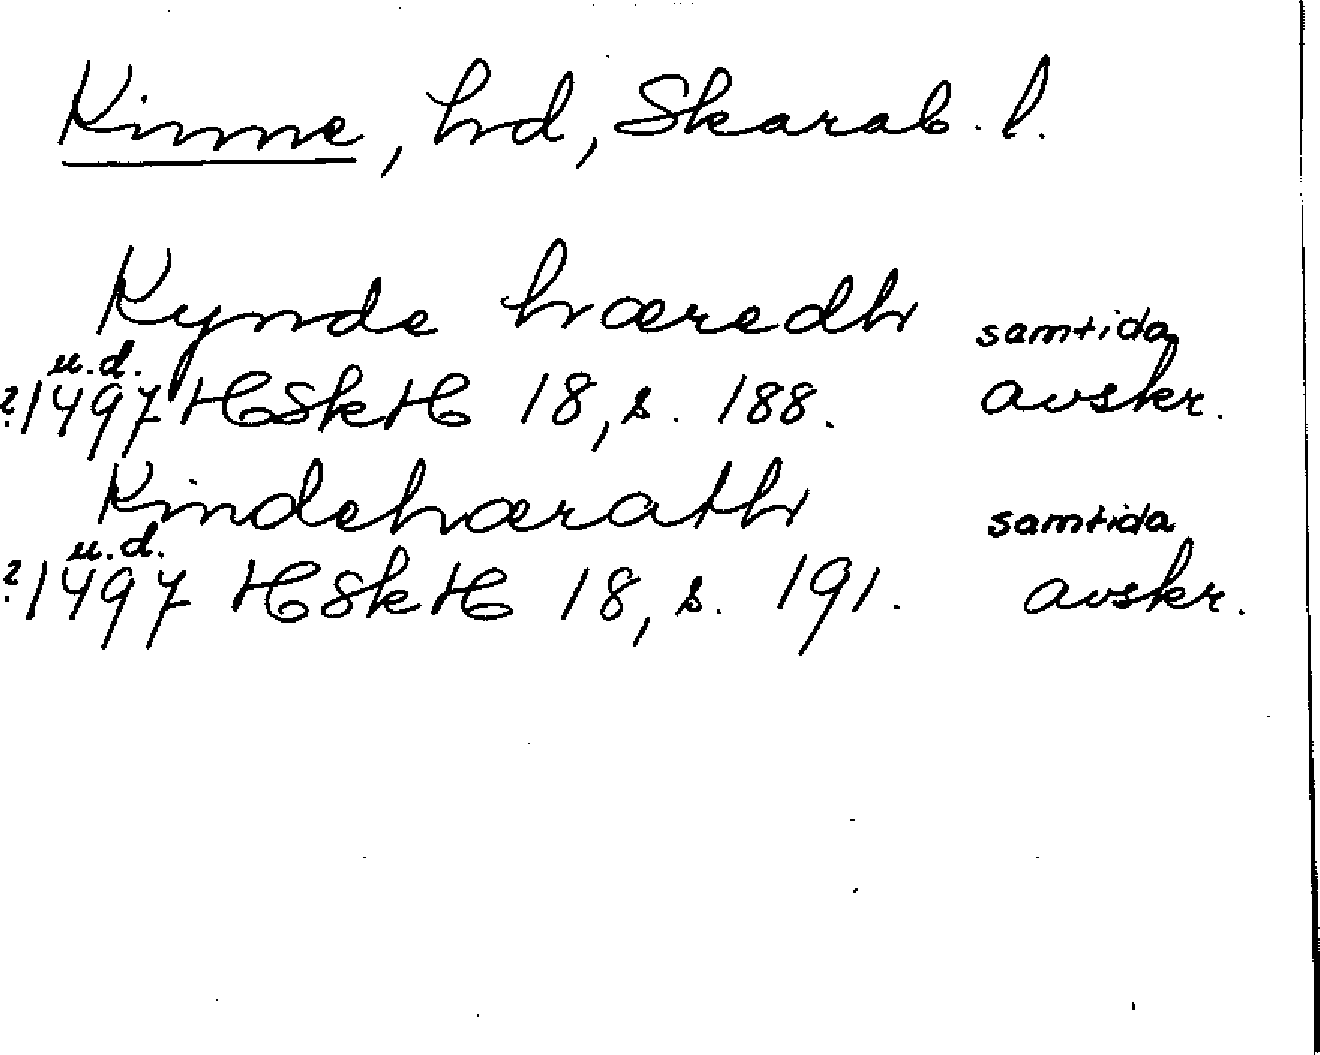 Kinne, hd, Skarab. l.
Kynde hæredh samtida
u.d.
?1497 HSkH 18, s. 188. avskr.
Kindehærath samtida
u.d.
?1497 HSkH 18, s. 191. avskr.